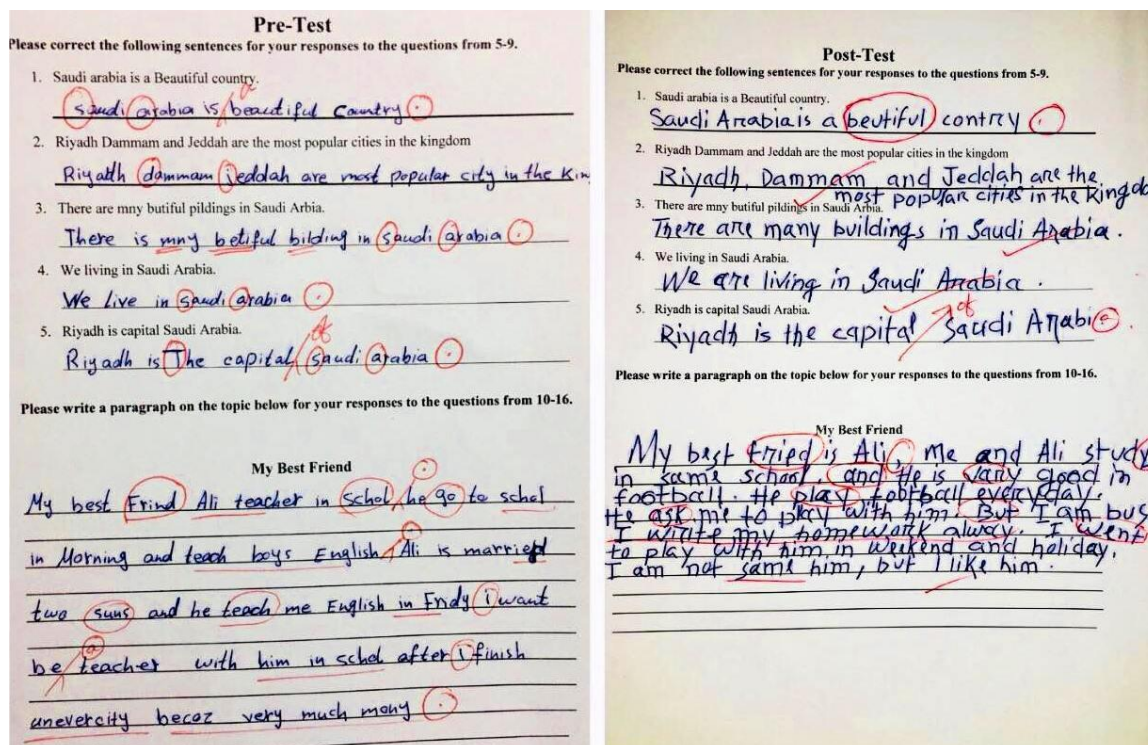 Pre-Test
Please correct the following sentences for your responses to the questions from 5-9.
1. Saudi arabia is a Beautiful country.
a
saudi arabia is beautiful Country .
2. Riyadh Dammam and Jeddah are the most popular cities in the kingdom
Riyadh dammam jeddah are most popular city in the Kin
3. There are mny butiful pildings in Saudi Arbia.
There is mny betiful bilding in saudi arabia .
4. We living in Saudi Arabia.
We Live in saudi arabia .
5. Riyadh is capital Saudi Arabia.
of
Riyadh is The capital saudi arabia .
Please write a paragraph on the topic below for your responses to the questions from 10-16.
My Best Friend
.
My best Frind Ali teacher in schol he go to schol
.
in Morning and teach boys English Ali is married
two suns and he teach me English in Fndy i want
a
be teacher with him in schol after i finish
unevercity becoz very much mony .
Post-Test
Please correct the following sentences for your responses to the questions from 5-9.
1. Saudi arabia is a Beautiful country.
Saudi Arabia is a beutiful contry .
2. Riyadh Dammam and Jeddah are the most popular cities in the kingdom
Riyadh, Dammam and Jeddah are the
most popular cities in the Kingdo
3. There are mny butiful pildings in Saudi Arbia.
There are many buildings in Saudi Arabia.
4. We living in Saudi Arabia.
We are living in Saudi Arabia.
5. Riyadh is capital Saudi Arabia.
of
Riyadh is the capital Saudi Arabia.
Please write a paragraph on the topic below for your responses to the questions from 10-16.
My Best Friend
My best fried is Ali, me and Ali study
in same school, and He is vary good in
football. He play football everyday.
He ask me to play with him. But I am bus
I wirite my homework alway. I went
to play with him in weekend and holiday.
I am not same him, but I like him.